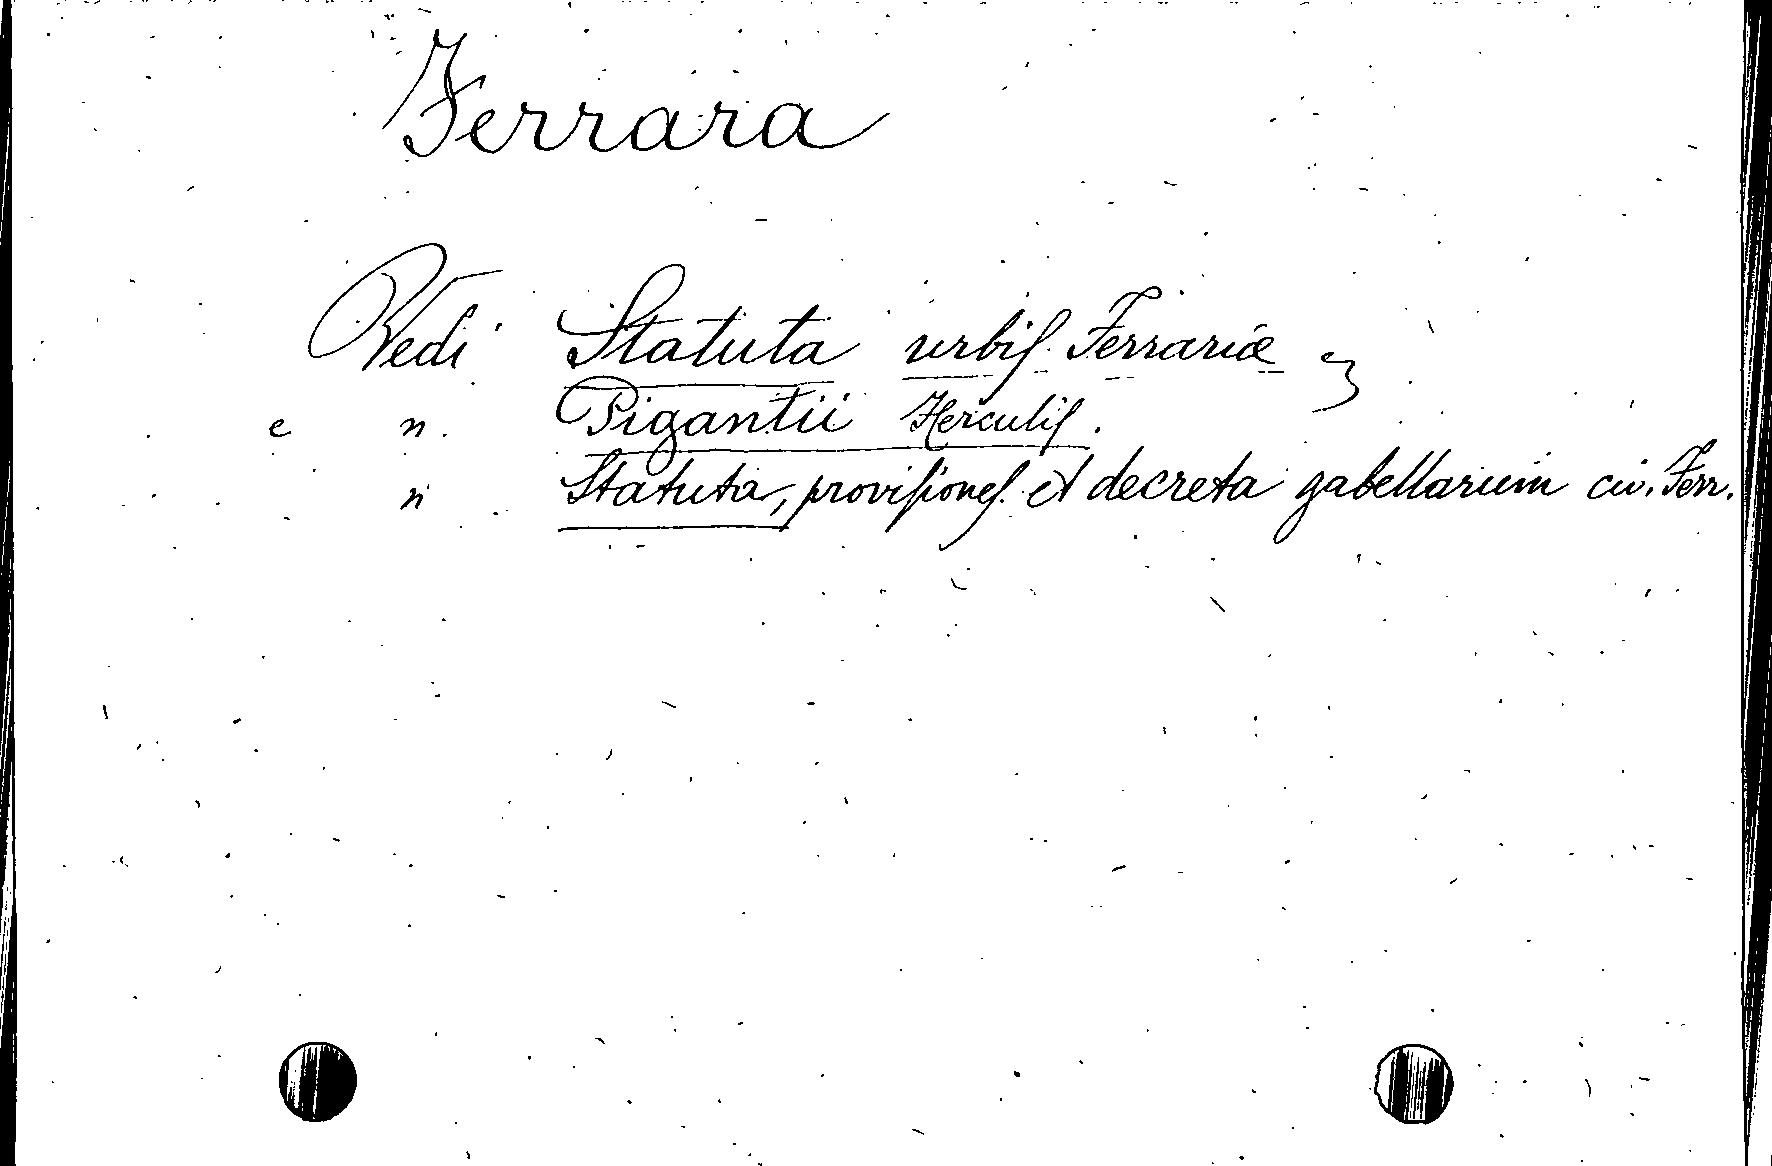 Ferrara
Vedi Statuta urbis Ferrariæ
e n. Pigantii Herculis.
n Statuta, provisiones et decreta gabellarum civ. Ferr.